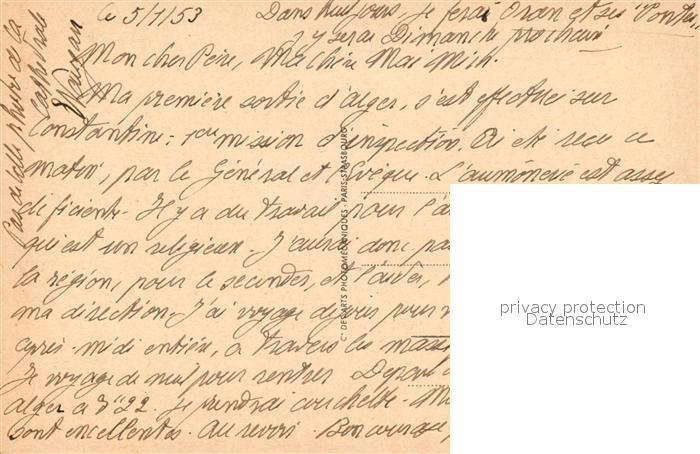 le 5/7/53 Dans huit jours, je ferai Oran et ses
j'y serai Dimanche prochain
Mon cher Père, Ma chère Mar Mich.
Ma première sortie d'alger, s'est effectuée sur
Constantine: 1ère mission d'inspection. Ai été reçu ce
matin, par le Général et l'Evêque. L'aumônerie est assez
déficiente. Il y a du travail pour l'a
qui est un religieux. J'aurai donc pas
la région, pour le seconder, et l'aider,
ma direction. J'ai voyagé depuis
après-midi entière, à travers les mass
Je voyage de nuit pour rentrer Départ
alger à 7h22. Je prendrai couchette. M
sont excellentes. Au revoir. Bon courage
Pas de belle photo de la
cathédrale
Cie DES ARTS PHOTOMÉCANIQUES - PARIS-STRASBOURG
privacy protection
Datenschutz